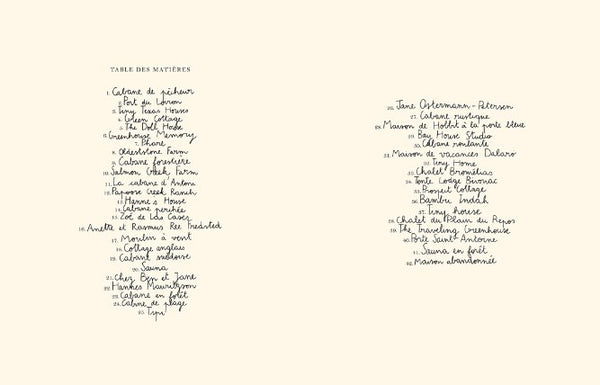 TABLE DES MATIÈRES
1. Cabane de pêcheur
2. Port du Lavron
3. Tiny Texas Houses
4. Green Cottage
5. The Doll House
6. Greenhouse Memory
7. Phare
8. Oldeststone Farm
9. Cabane forestière
10. Salmon Creek Farm
11. La cabane d'Antone
12. Papoose Creek Ranch
13. Hanne's House
14. Cabane perchée
15. Zoé de Las Cases
16. Anette et Rasmus Ree Tredsted
17. Moulin à vent
18. Cottage anglais
19. Cabane suédoise
20. Sauna
21. Chez Ben et Jane
22. Hannes Mauritzson
23. Cabane en forêt
24. Cabane de plage
25. Tipi
26. Jane Ostermann-Petersen
27. Cabane rustique
28. Maison de Hobbit à la porte bleue
29. Bay House Studio
30. Cabane roulante
31. Maison de vacances Dalarö
32. Tiny Home
33. Chalet Bromélias
34. Tente Lodge Bivouac
35. Project Cottage
36. Bambu Indah
37. Tiny house
38. Chalet du Pèlain du Repos
39. The Traveling Greenhouse
40. Porte Saint-Antoine
41. Sauna en forêt
42. Maison abandonnée